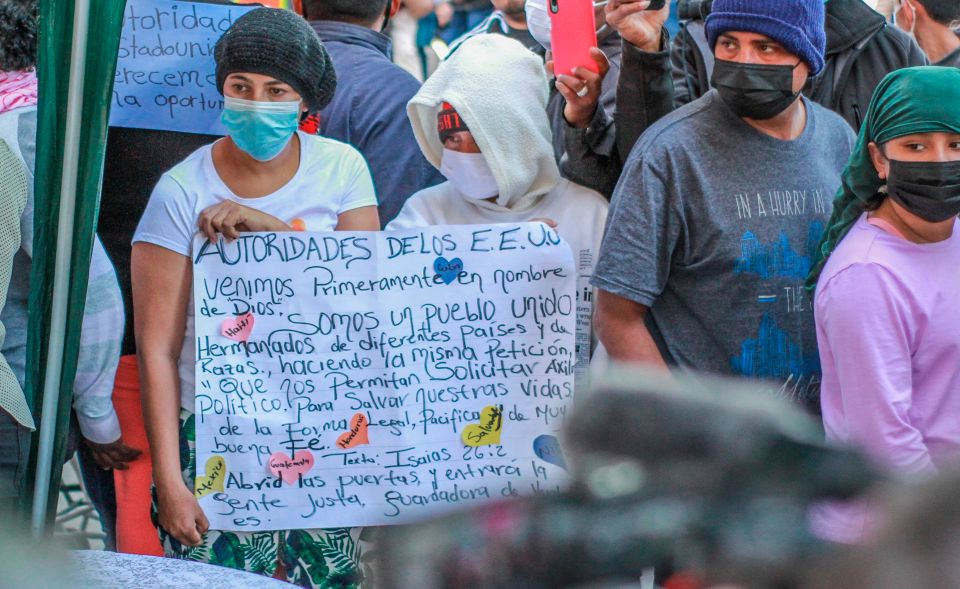 toridad
stadouni
erecem
na oportun
AUTORIDADES DE LOS E.E.U.U
Venimos Primeramente en nombre
de Dios".
Cuba
Somos un pueblo unido
Haití
Hermanados de diferentes países y de
Razas, haciendo la misma Petición,
"Que nos Permitan Solicitar Axilo
Político, Para Salvar nuestras Vidas
de la Forma Legal, Pacifica y de Muy
buena Fe.
Honduras
Salvador
Guatemala
Texto: Isaías 26:2
Mexico
Abrid las puertas, y entrará la
Gente Justa, Guardadora de
es.
IN A HURRY IN